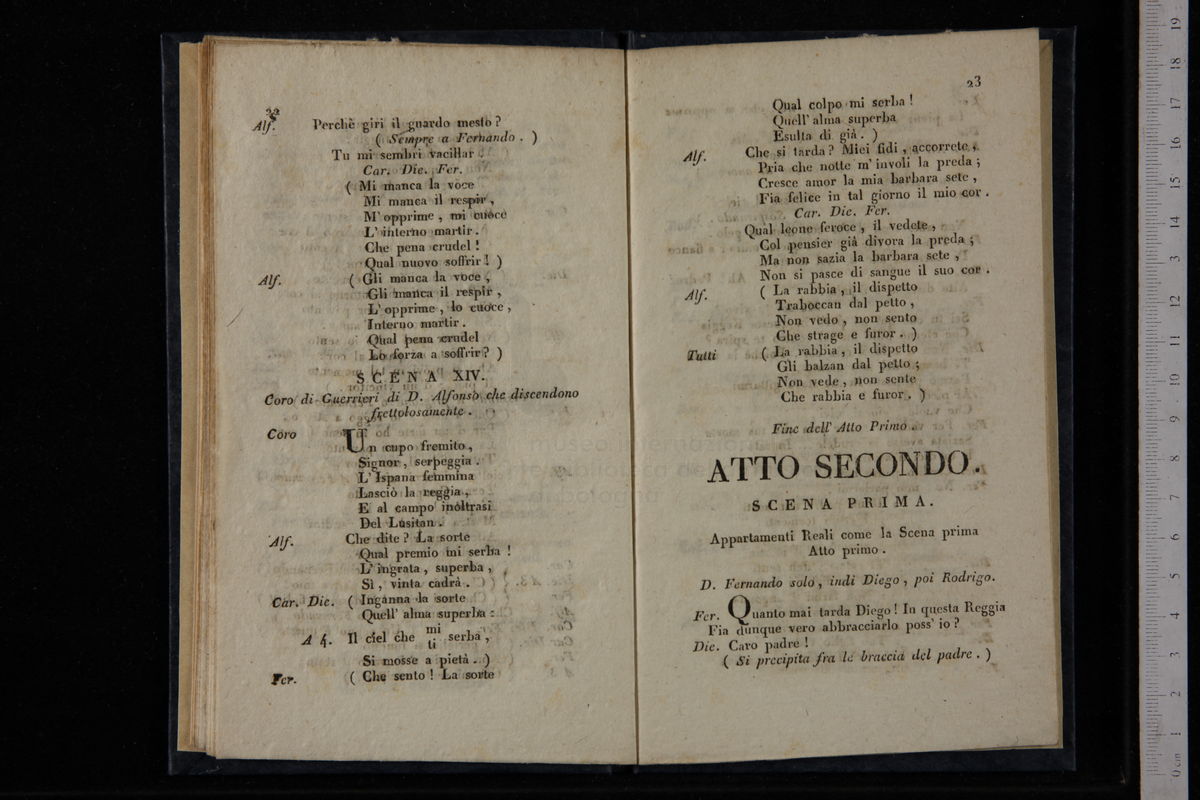 22
Alf. Perchè giri il guardo mesto?
( Sempre a Fernando . )
Tu mi sembri vacillar .
Car. Die. Fer.
( Mi manca la voce
Mi manca il respir ,
M' opprime , mi cuoce
L' interno martir .
Che pena crudel !
Qual nuovo soffrir ! )
Alf. ( Gli manca la voce ,
Gli manca il respir ,
L' opprime , lo cuoce ,
Interno martir .
Qual pena crudel
Lo forza a soffrir ? )
SCENA XIV.
Coro di Guerrieri di D. Alfonso che discendono
frettolosamente .
Coro Un cupo fremito ,
Signor , serpeggia .
L' Ispana femmina
Lasciò la reggia ,
E al campo inoltrasi
Del Lusitan .
Alf. Che dite ? La sorte
Qual premio mi serba !
L' ingrata , superba ,
Sì , vinta cadrà .
Car. Die. ( Inganna la sorte
Quell' alma superba :
A 4. Il ciel che mi serba ,
ti
Si mosse a pietà . )
Fer. ( Che sento ! La sorte
23
Qual colpo mi serba !
Quell' alma superba
Esulta di già . )
Alf. Che si tarda ? Miei fidi , accorrete ,
Pria che notte m' involi la preda ;
Cresce amor la mia barbara sete ,
Fia felice in tal giorno il mio cor .
Car. Die. Fer.
Qual leone feroce , il vedete ,
Col pensier già divora la preda ;
Ma non sazia la barbara sete ,
Non si pasce di sangue il suo cor .
Alf. ( La rabbia , il dispetto
Traboccan dal petto ,
Non vedo , non sento
Che strage e furor . )
Tutti ( La rabbia , il dispetto
Gli balzan dal petto ;
Non vede , non sente
Che rabbia e furor . )
Fine dell' Atto Primo .
ATTO SECONDO.
SCENA PRIMA.
Appartamenti Reali come la Scena prima
Atto primo .
D. Fernando solo , indi Diego , poi Rodrigo.
Fer. Quanto mai tarda Diego ! In questa Reggia
Fia dunque vero abbracciarlo poss' io ?
Die. Caro padre !
( Si precipita fra le braccia del padre . )
0 cm 1 2 3 4 5 6 7 8 9 10 11 12 13 14 15 16 17 18 19